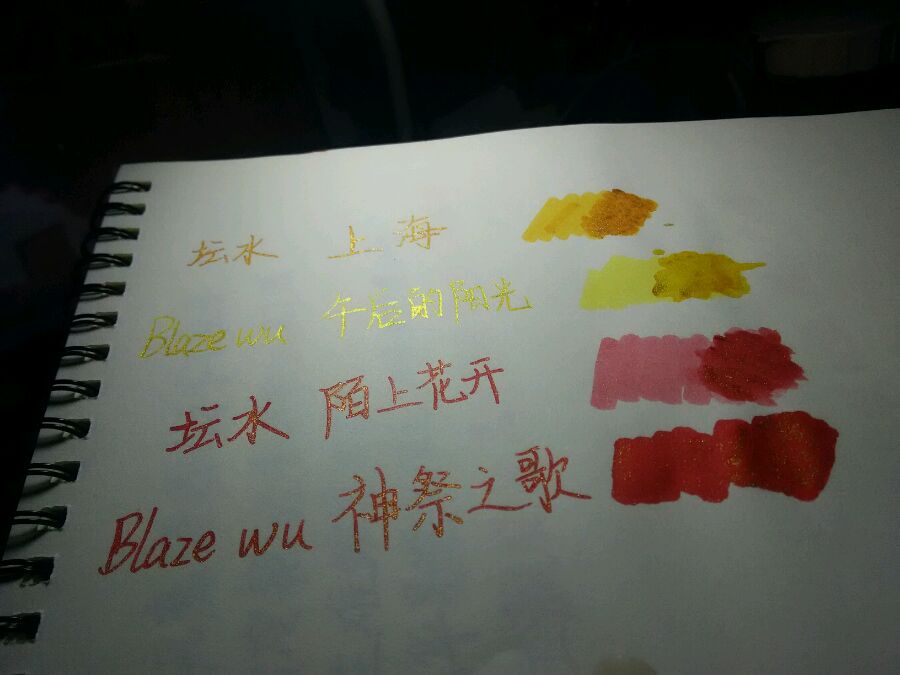 坛水 上海
Blaze wu 午后的阳光
坛水 陌上花开
Blaze wu 神祭之歌